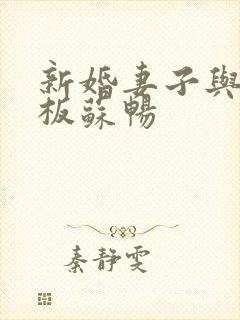 新婚妻子與
板蘇暢
秦靜雯